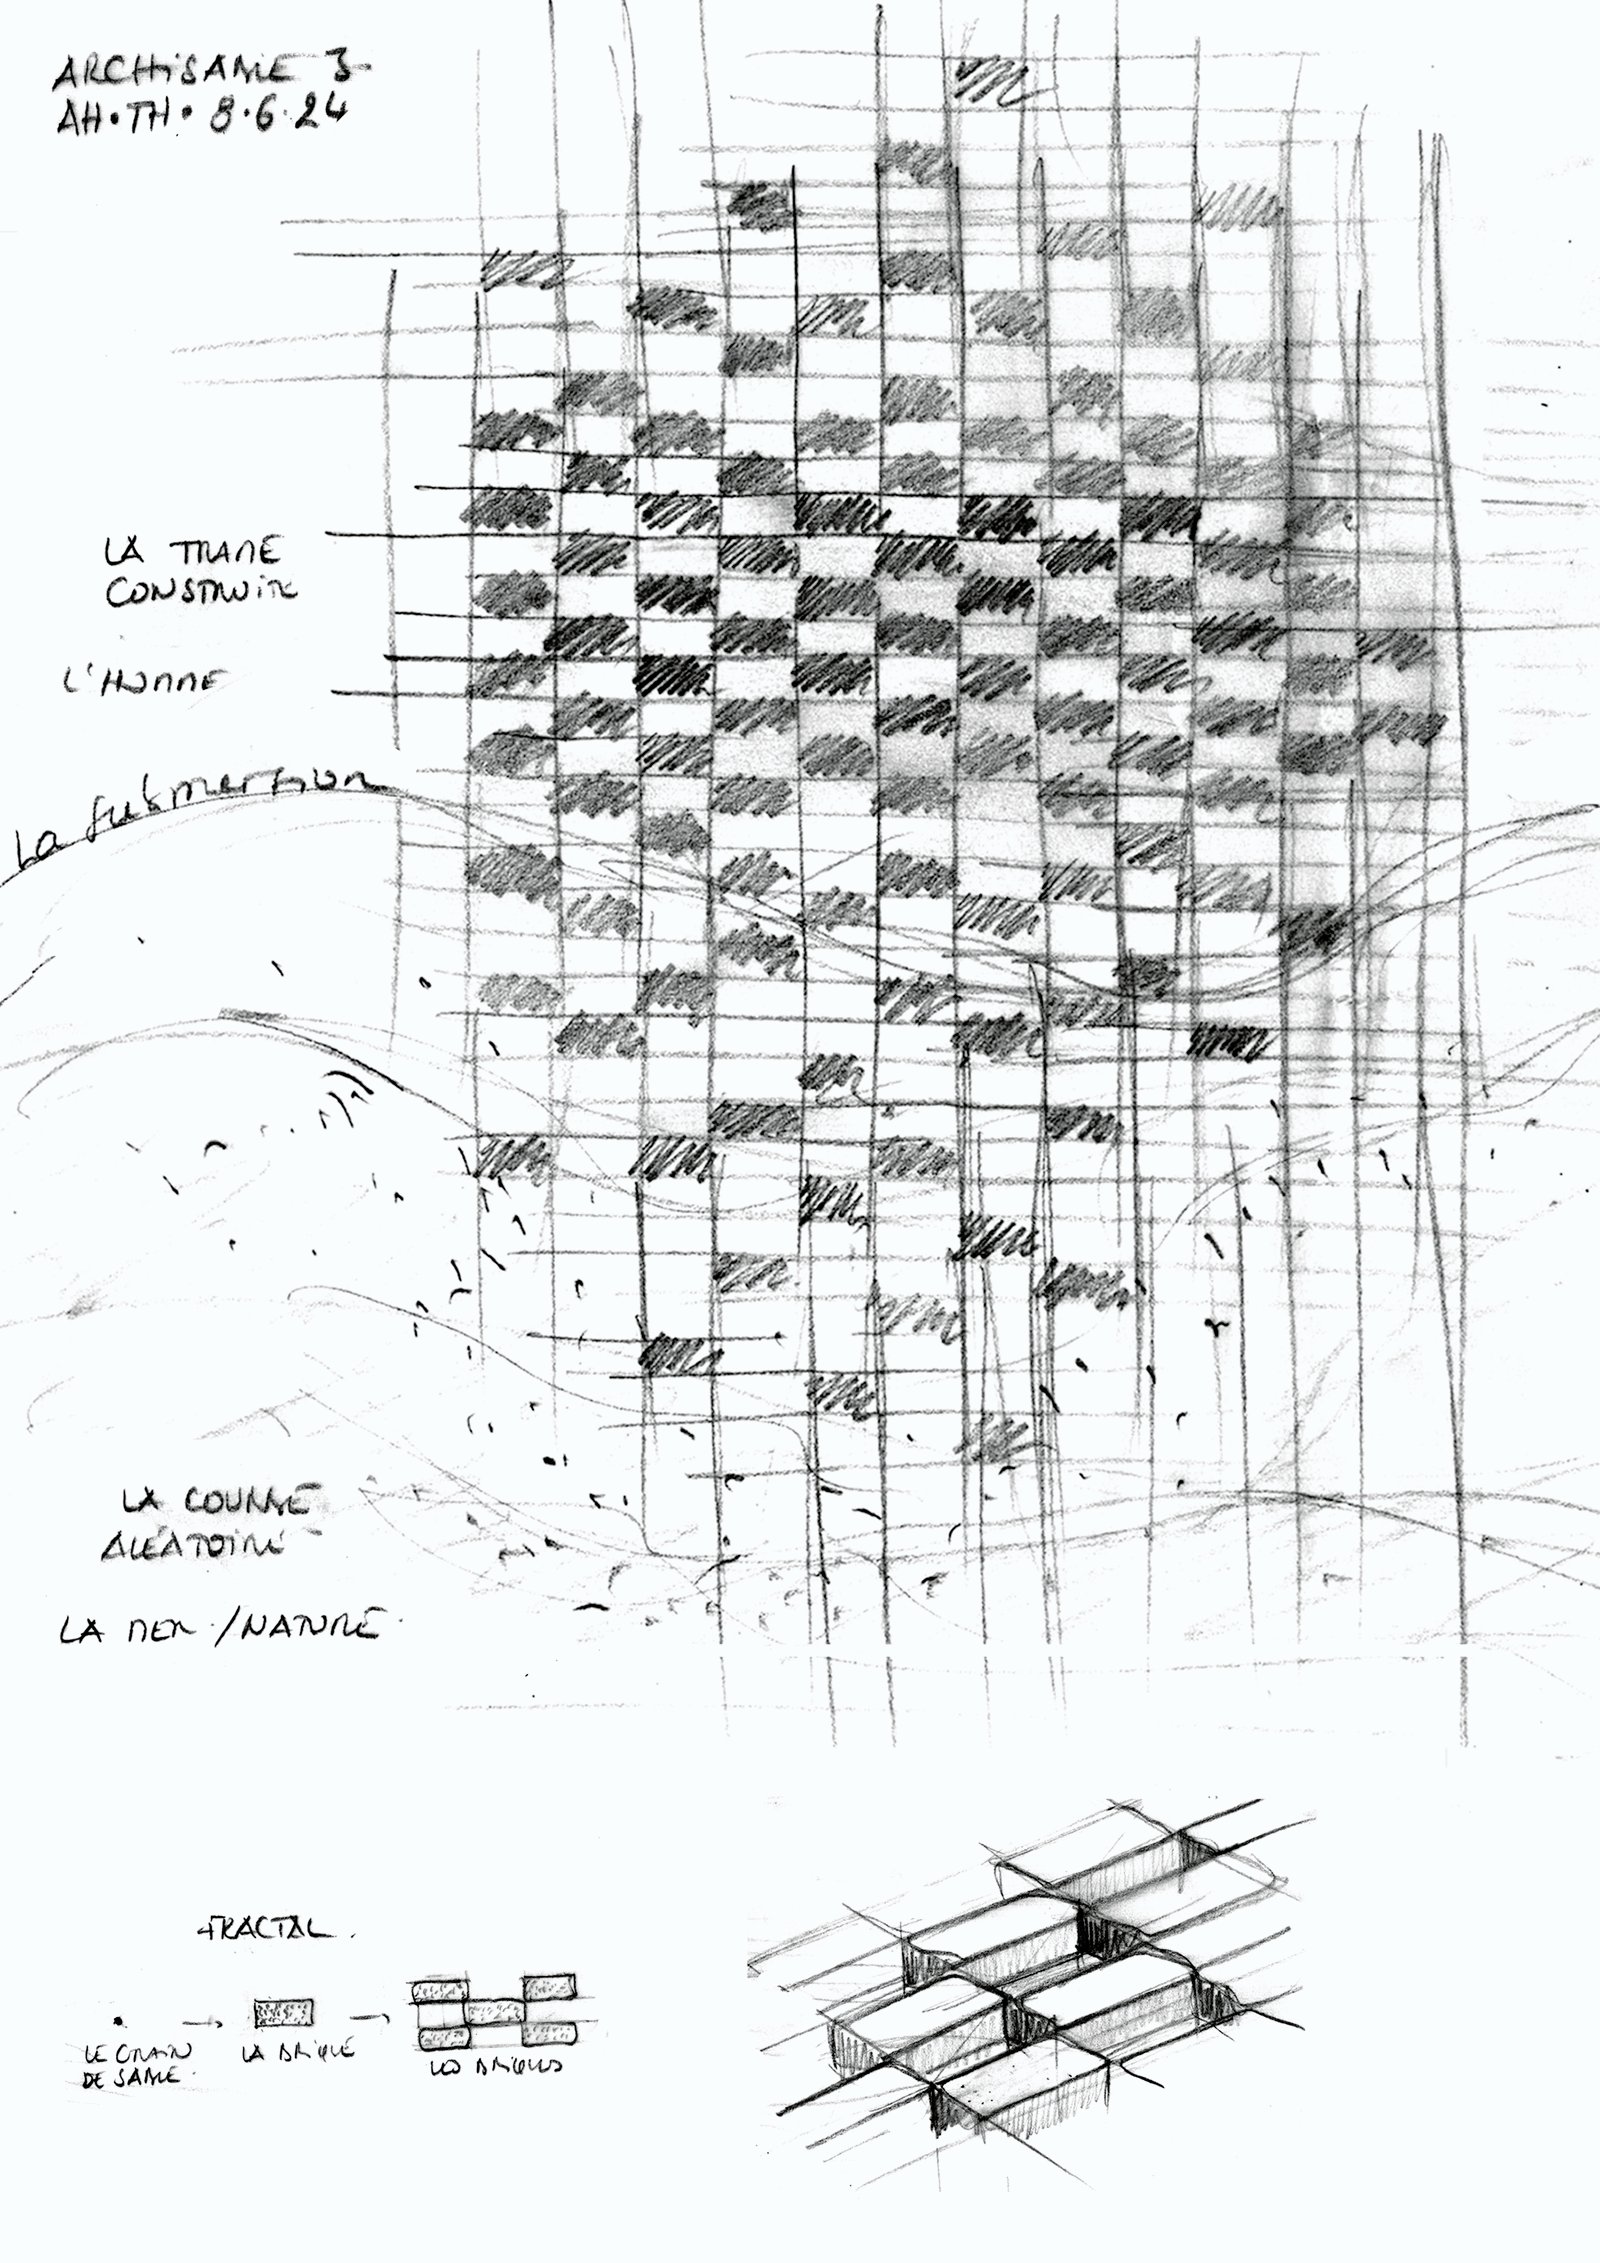 ARCHiSABLE 3
AH•TH• 8•6•24
LA TRAME
CONSTRUiTE
L'HOMME
La submersion
LA COURBE
ALÉATOIRE
LA MER / NATURE
FRACTAL.
LE GRAIN
DE SABLE.
LA BRiQUE
LES BRiQUES